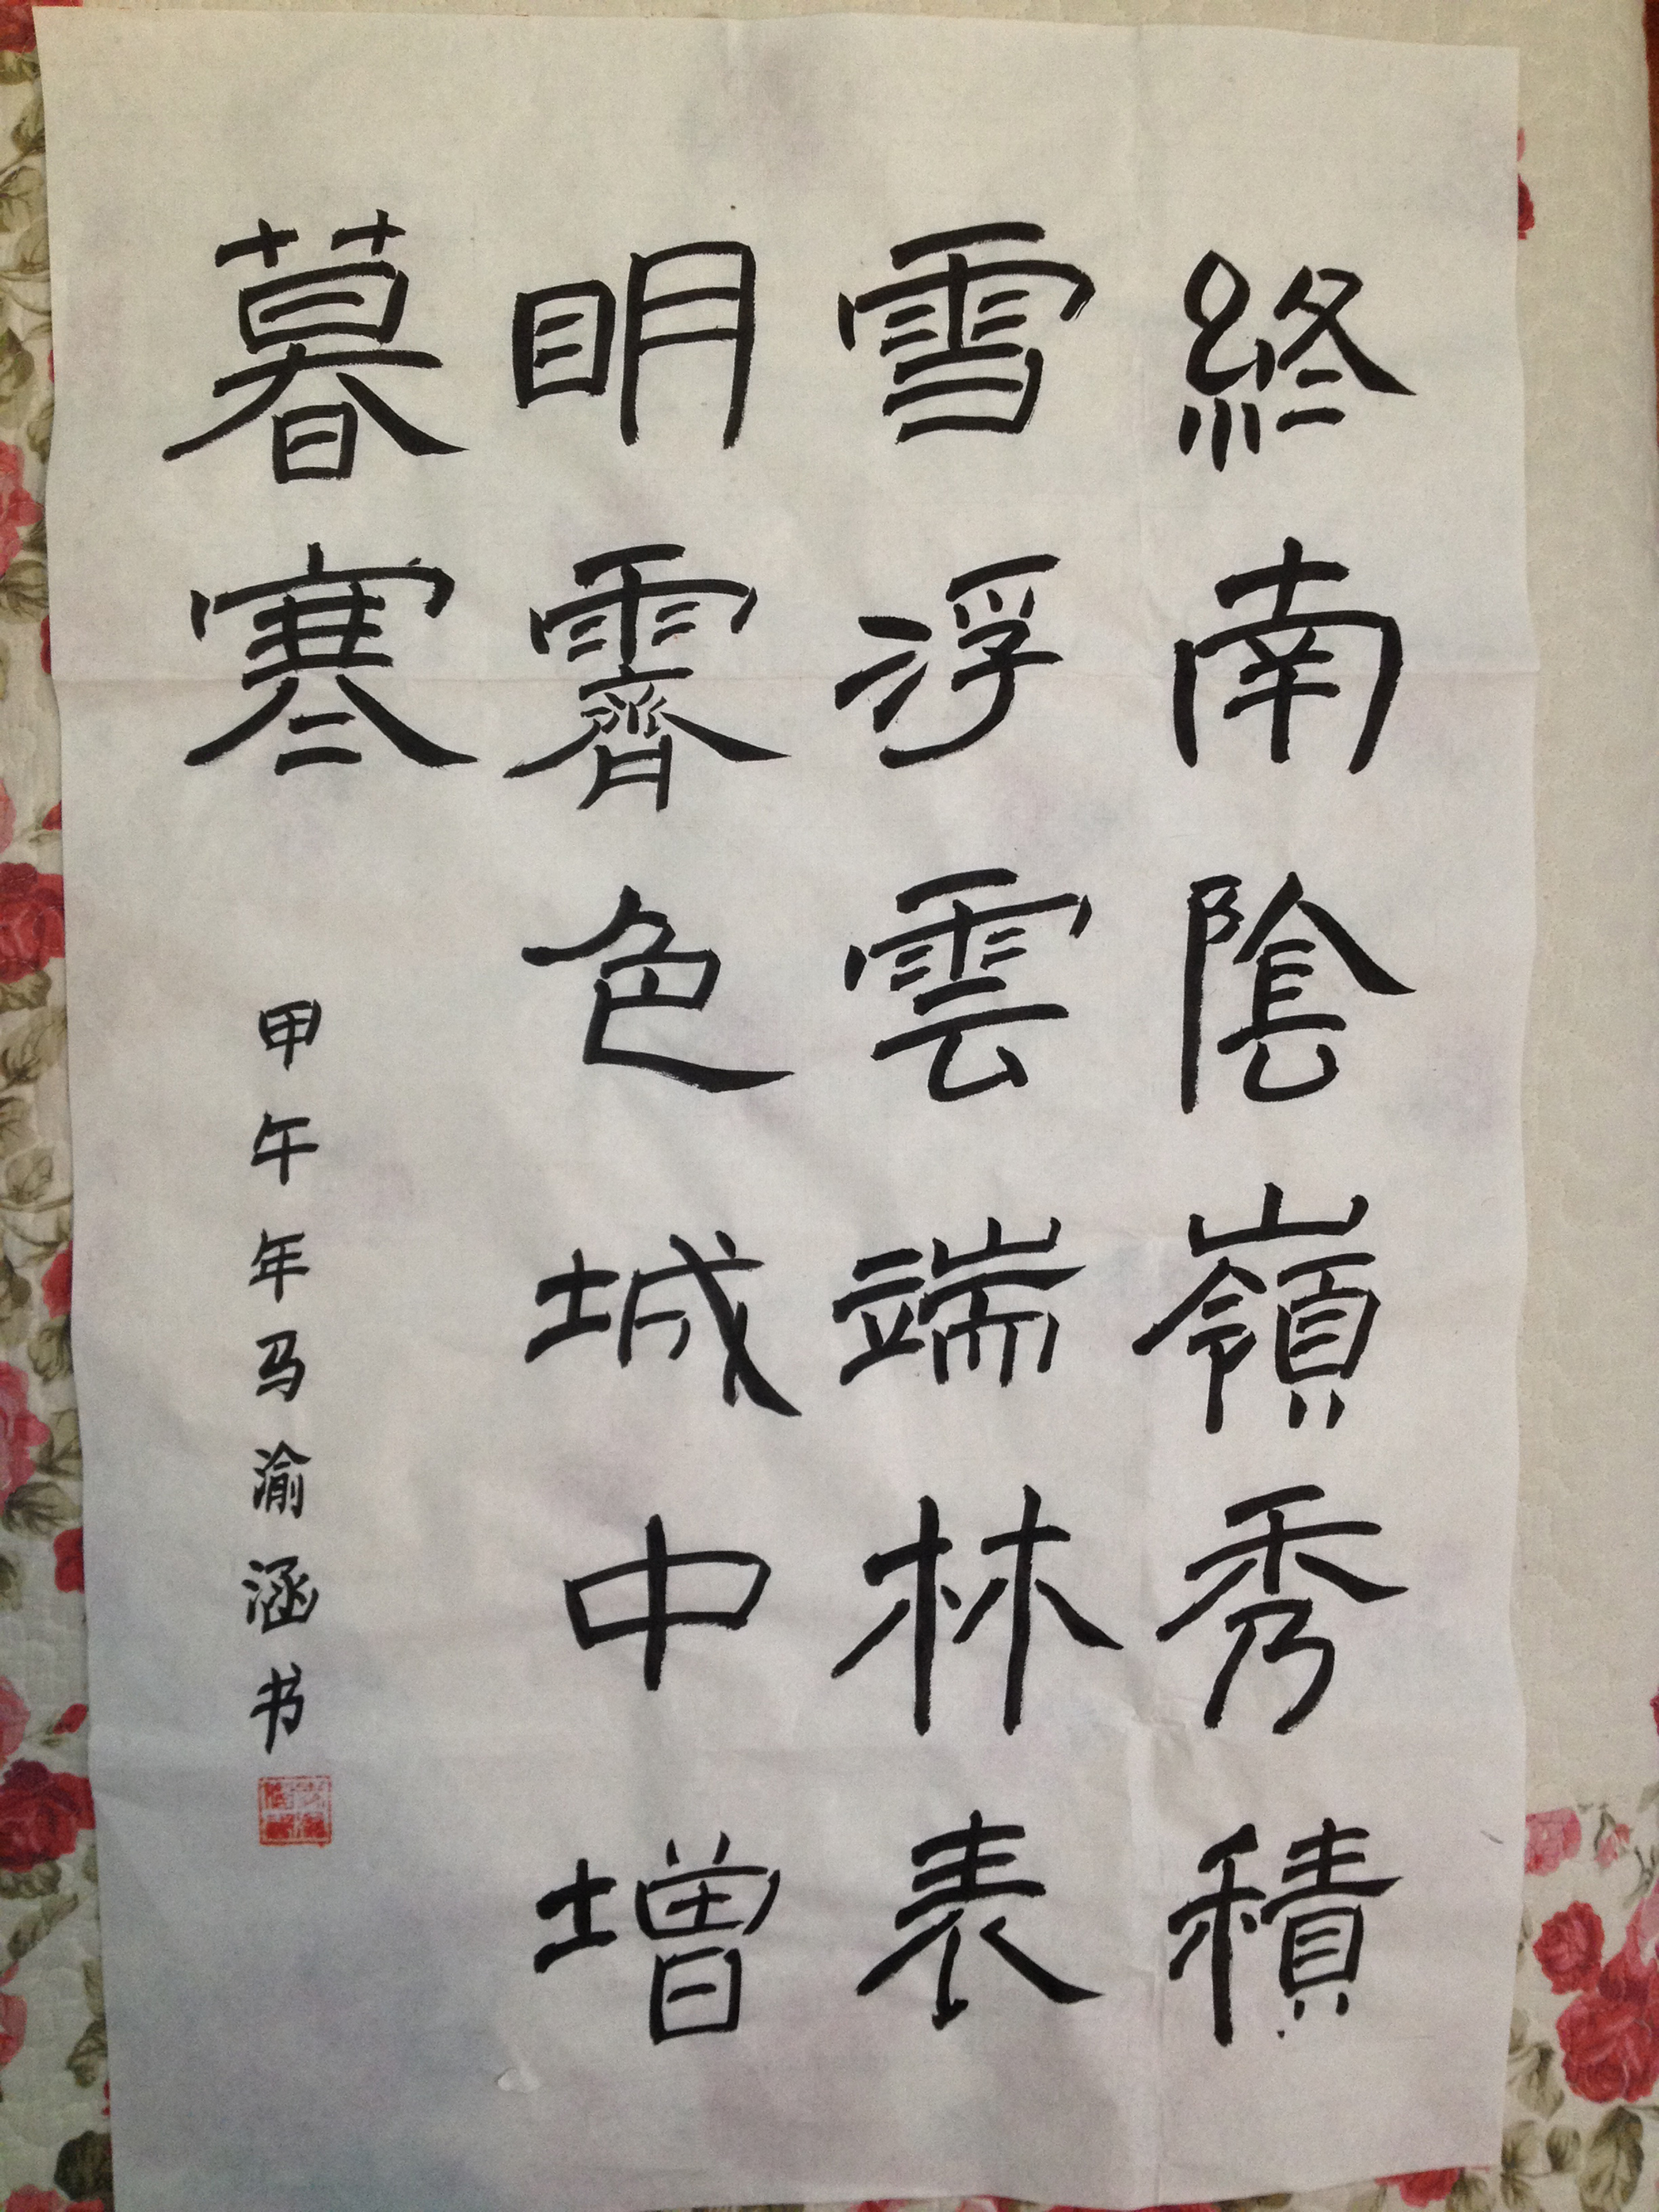 終南陰嶺秀積
雪浮雲端林表
明霽色城中增
暮寒
甲午年马渝涵书